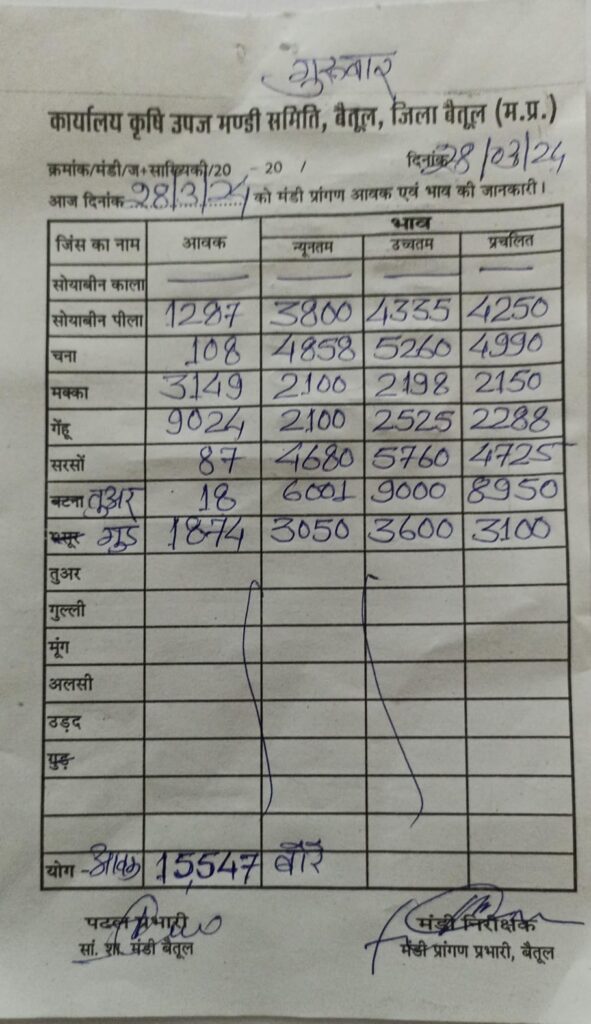 गुरुवार
कार्यालय कृषि उपज मण्डी समिति, बैतूल, जिला बैतूल (म.प्र.)
क्रमांक/मंडी/ज+सांख्यिकी/20 - 20 / दिनांक 28/03/24
आज दिनांक 28/3/24 को मंडी प्रांगण आवक एवं भाव की जानकारी।
जिंस का नाम आवक भाव
न्यूनतम उच्चतम प्रचलित
सोयाबीन काला — — — —
सोयाबीन पीला 1287 3800 4335 4250
चना 108 4858 5260 4990
मक्का 3149 2100 2198 2150
गेंहू 9024 2100 2525 2288
सरसों 87 4680 5760 4725
बटना तूअर 18 6001 9000 8950
मसूर गुड 1874 3050 3600 3100
तुअर
गुल्ली
मूंग
अलसी
उड़द
गुड़
योग - आवक 15,547 बोरे
प्रभारी मंडी निरीक्षक
सां. शा. मंडी बैतूल मंडी प्रांगण प्रभारी, बैतूल